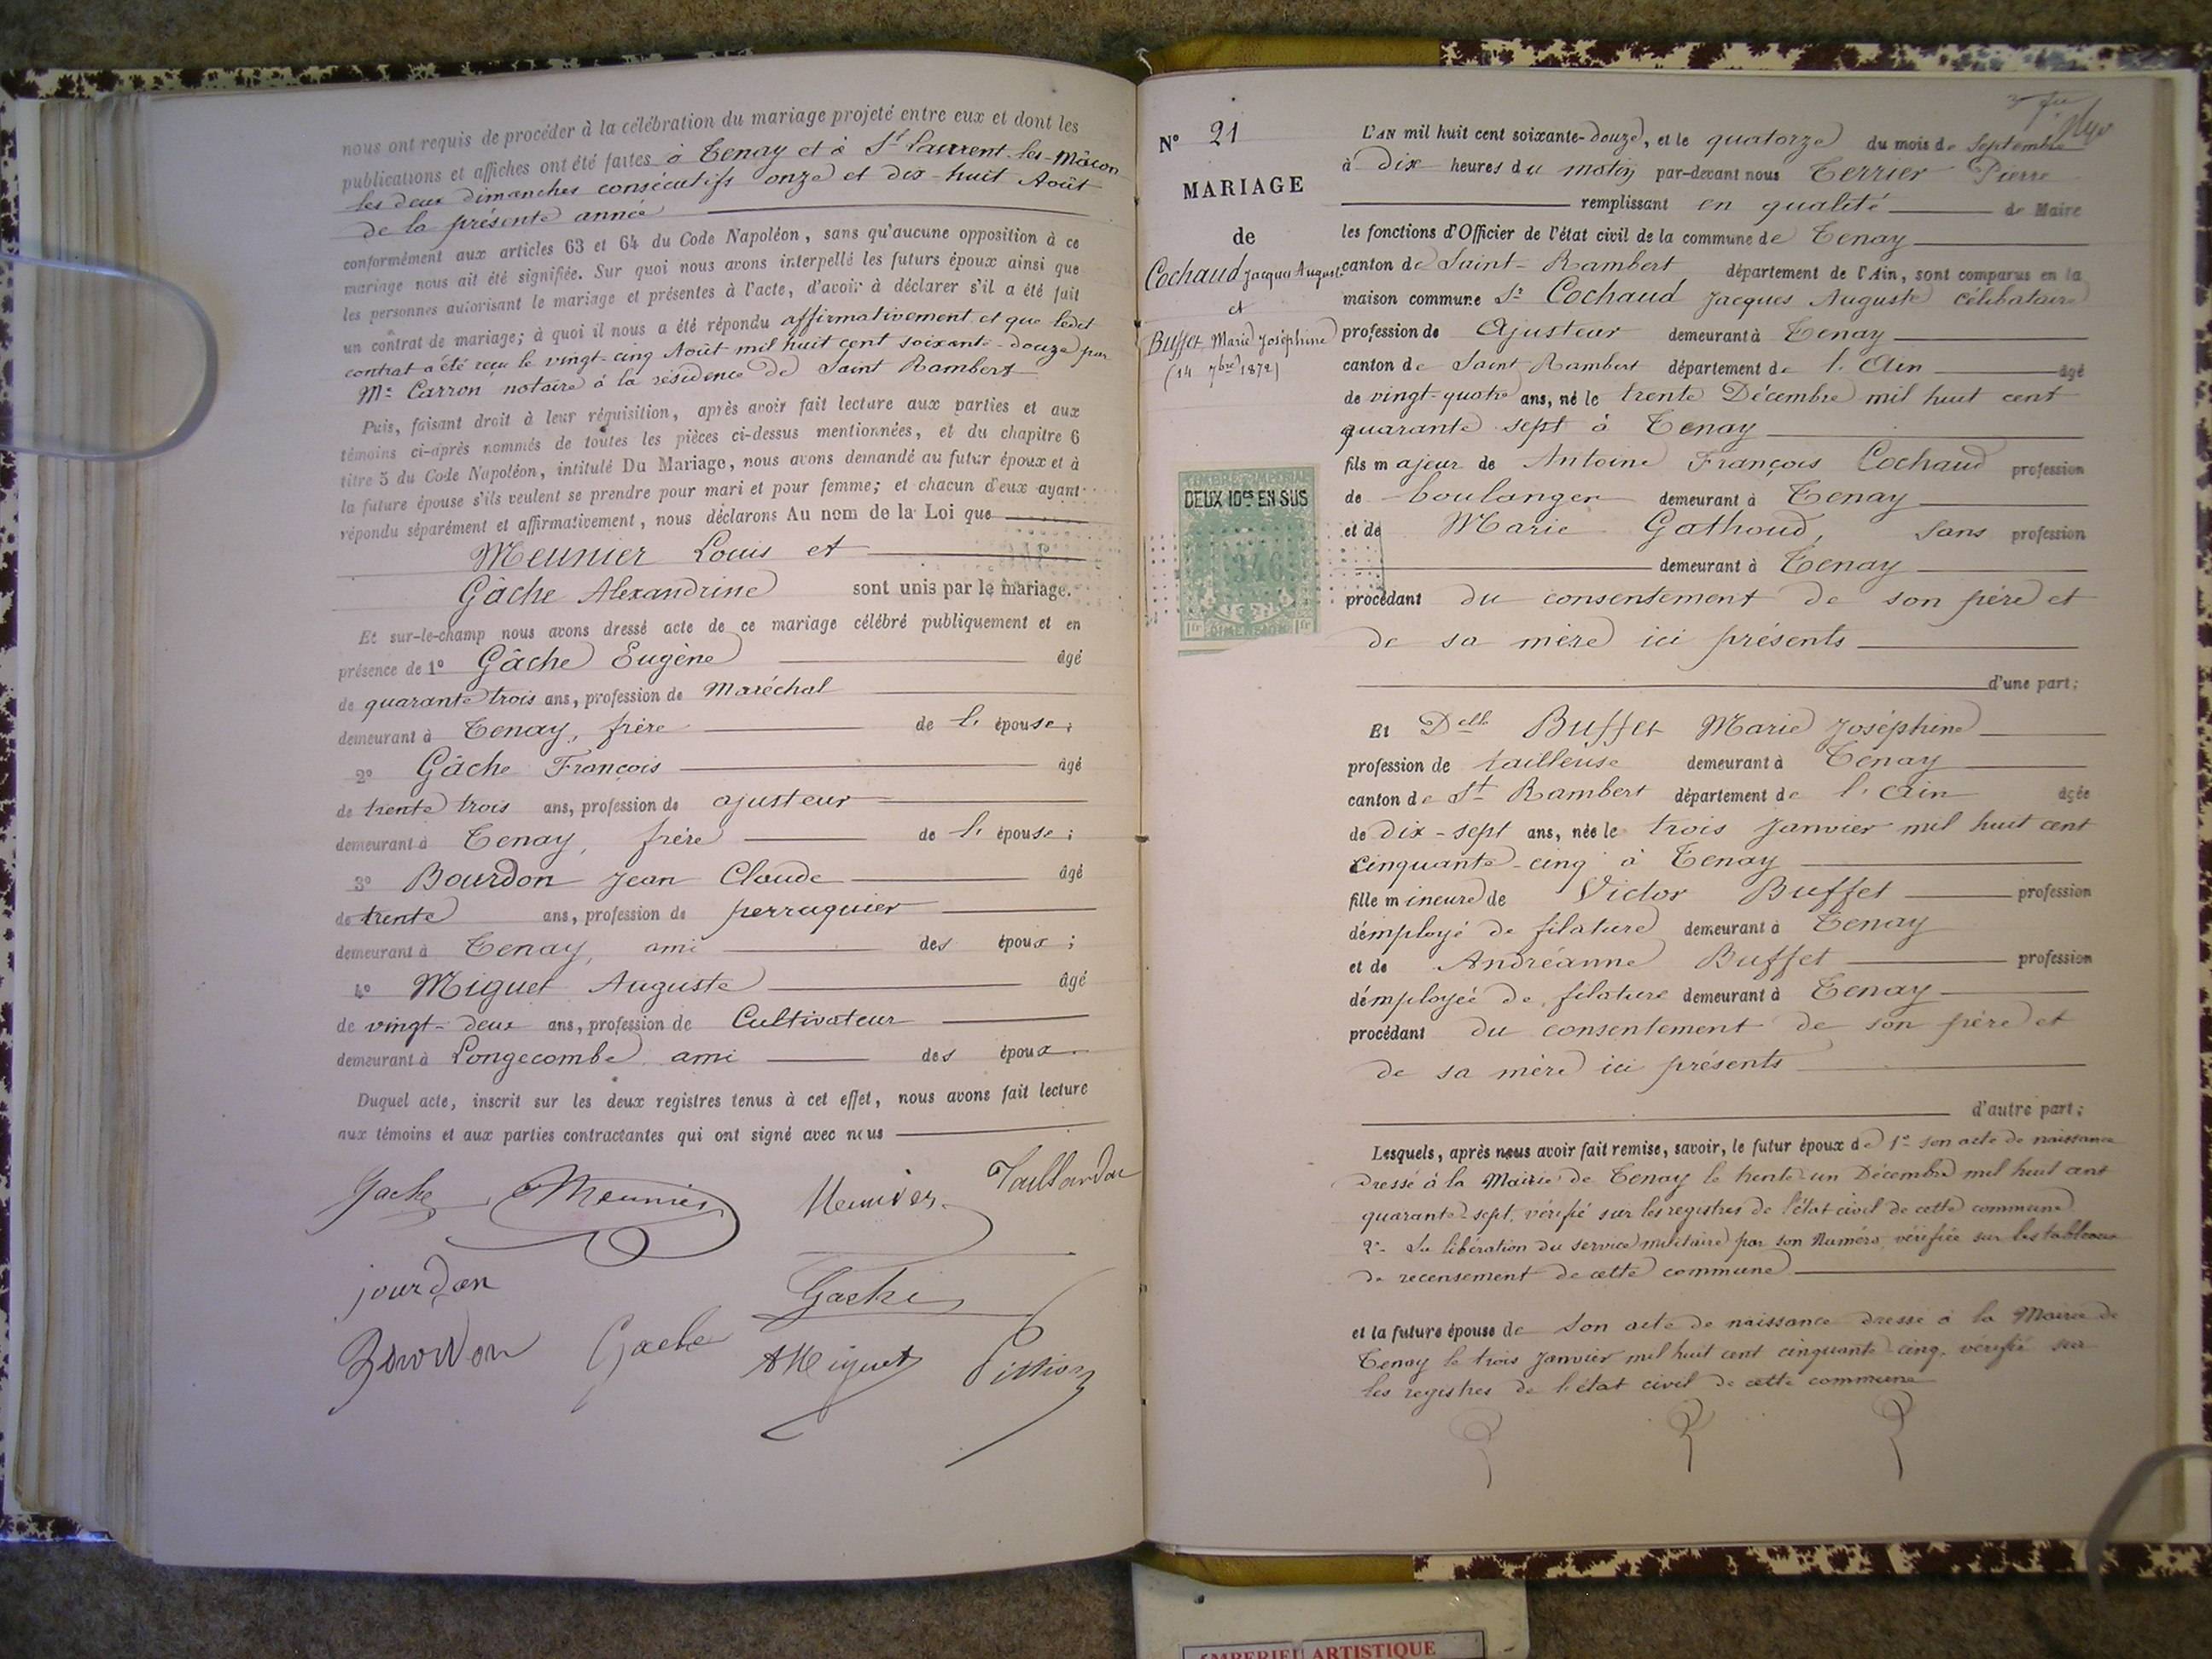 nous ont requis de procéder à la célébration du mariage projeté entre eux et dont les
publications et affiches ont été faites à Tenay et à St Laurent-les-Mâcon
les deux dimanches consécutifs onze et dix-huit Août
de la présente année
conformément aux articles 63 et 64 du Code Napoléon, sans qu'aucune opposition à ce
mariage nous ait été signifiée. Sur quoi nous avons interpellé les futurs époux ainsi que
les personnes autorisant le mariage et présentes à l'acte, d'avoir à déclarer s'il a été fait
un contrat de mariage; à quoi il nous a été répondu affirmativement et que ledit
contrat a été reçu le vingt-cinq Août mil huit cent soixante-douze par
Me Carron notaire à la résidence de Saint Rambert
Puis, faisant droit à leur réquisition, après avoir fait lecture aux parties et aux
témoins ci-après nommés de toutes les pièces ci-dessus mentionnées, et du chapitre 6
titre 5 du Code Napoléon, intitulé Du Mariage, nous avons demandé au futur époux et à
la future épouse s'ils veulent se prendre pour mari et pour femme; et chacun d'eux ayant
répondu séparément et affirmativement, nous déclarons Au nom de la Loi que
Meunier Louis et
Gâche Alexandrine sont unis par le mariage.
Et sur-le-champ nous avons dressé acte de ce mariage célébré publiquement et en
présence de 1° Gâche Eugène âgé
de quarante trois ans, profession de Maréchal
demeurant à Tenay, frère de l'épouse;
2° Gâche François âgé
de trente trois ans, profession de ajusteur
demeurant à Tenay, frère de l'épouse;
3° Bourdon Jean Claude âgé
de trente ans, profession de perruquier
demeurant à Tenay, ami des époux;
4° Miguet Auguste âgé
de vingt-deux ans, profession de Cultivateur
demeurant à Longecombe ami des époux.
Duquel acte, inscrit sur les deux registres tenus à cet effet, nous avons fait lecture
aux témoins et aux parties contractantes qui ont signé avec nous
Gache Meunier Meunier
jourdan Gache
Bourdon Gache AMiguet
N° 21
MARIAGE
de
Cochaud Jacques Auguste
et
Buffet Marie Joséphine
(14 7bre 1872)
TIMBRE IMPERIAL
DEUX 10es EN SUS
346
1fr DIMENSION 1fr
L'AN mil huit cent soixante-douze, et le quatorze du mois de Septembre
à dix heures du matin par-devant nous Terrier Pierre
remplissant en qualité de Maire
les fonctions d'Officier de l'état civil de la commune de Tenay
canton de Saint-Rambert département de l'Ain, sont comparus en la
maison commune Sr Cochaud Jacques Auguste célibataire
profession de Ajusteur demeurant à Tenay
canton de Saint Rambert département de l'Ain âgé
de vingt-quatre ans, né le trente Décembre mil huit cent
quarante sept à Tenay
fils majeur de Antoine François Cochaud profession
de boulanger demeurant à Tenay
et de Marie Gathoud, sans profession
demeurant à Tenay
procédant du consentement de son père et
de sa mère ici présents
d'une part;
Et Delle Buffet Marie Joséphine
profession de tailleuse demeurant à Tenay
canton de St Rambert département de l'Ain âgée
de dix-sept ans, née le trois Janvier mil huit cent
cinquante-cinq à Tenay
fille mineure de Victor Buffet profession
d'employé de filature demeurant à Tenay
et de Andréanne Buffet profession
d'employée de filature demeurant à Tenay
procédant du consentement de son père et
de sa mère ici présents
d'autre part;
Lesquels, après nous avoir fait remise, savoir, le futur époux de 1° son acte de naissance
dressé à la Mairie de Tenay le trente-un Décembre mil huit cent
quarante-sept, vérifié sur les registres de l'état civil de cette commune
2° Sa libération du service militaire par son Numéro, vérifiée sur les tableaux
de recensement de cette commune
et la future épouse de son acte de naissance dressé à la Mairie de
Tenay le trois Janvier mil huit cent cinquante-cinq, vérifié sur
les registres de l'état civil de cette commune
ARTISTIQUE